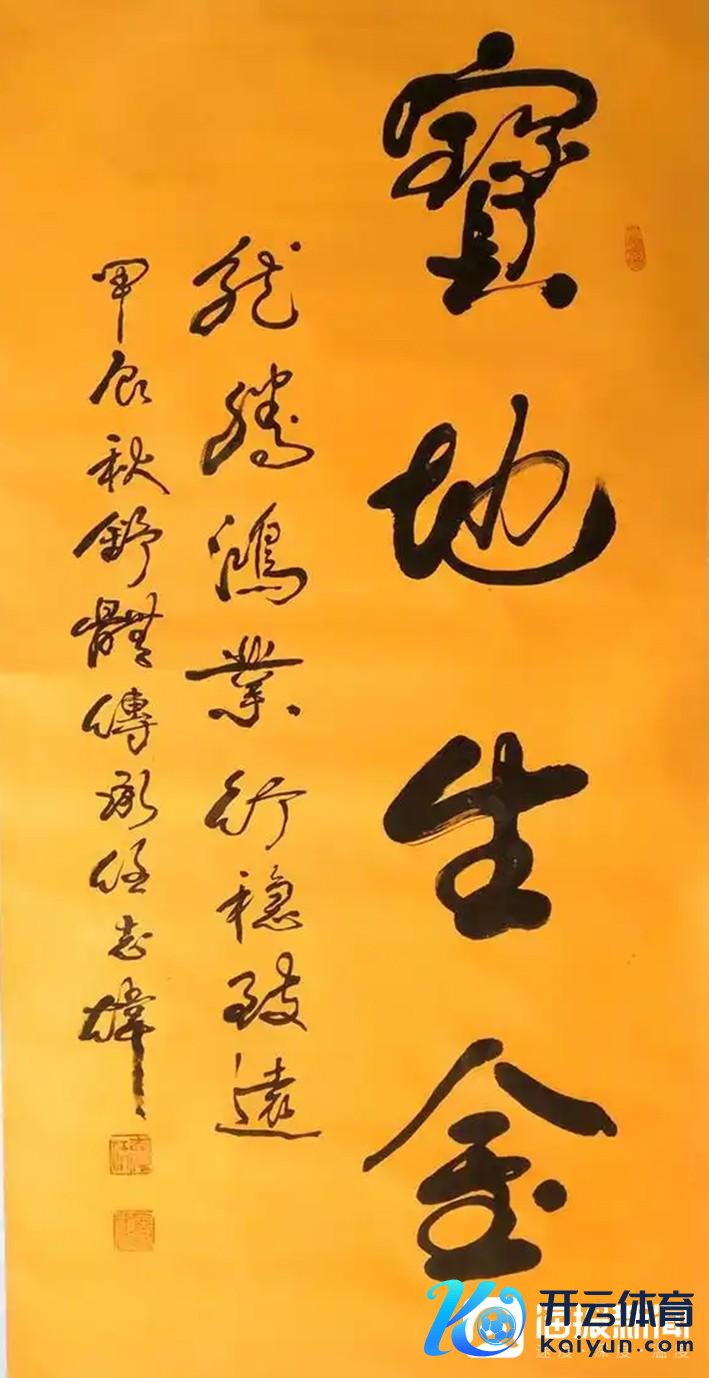 寶地生金
龍騰鴻業行穩致遠
甲辰秋舒體傳承任志偉
开云体育
kaiyun.com
海报新闻